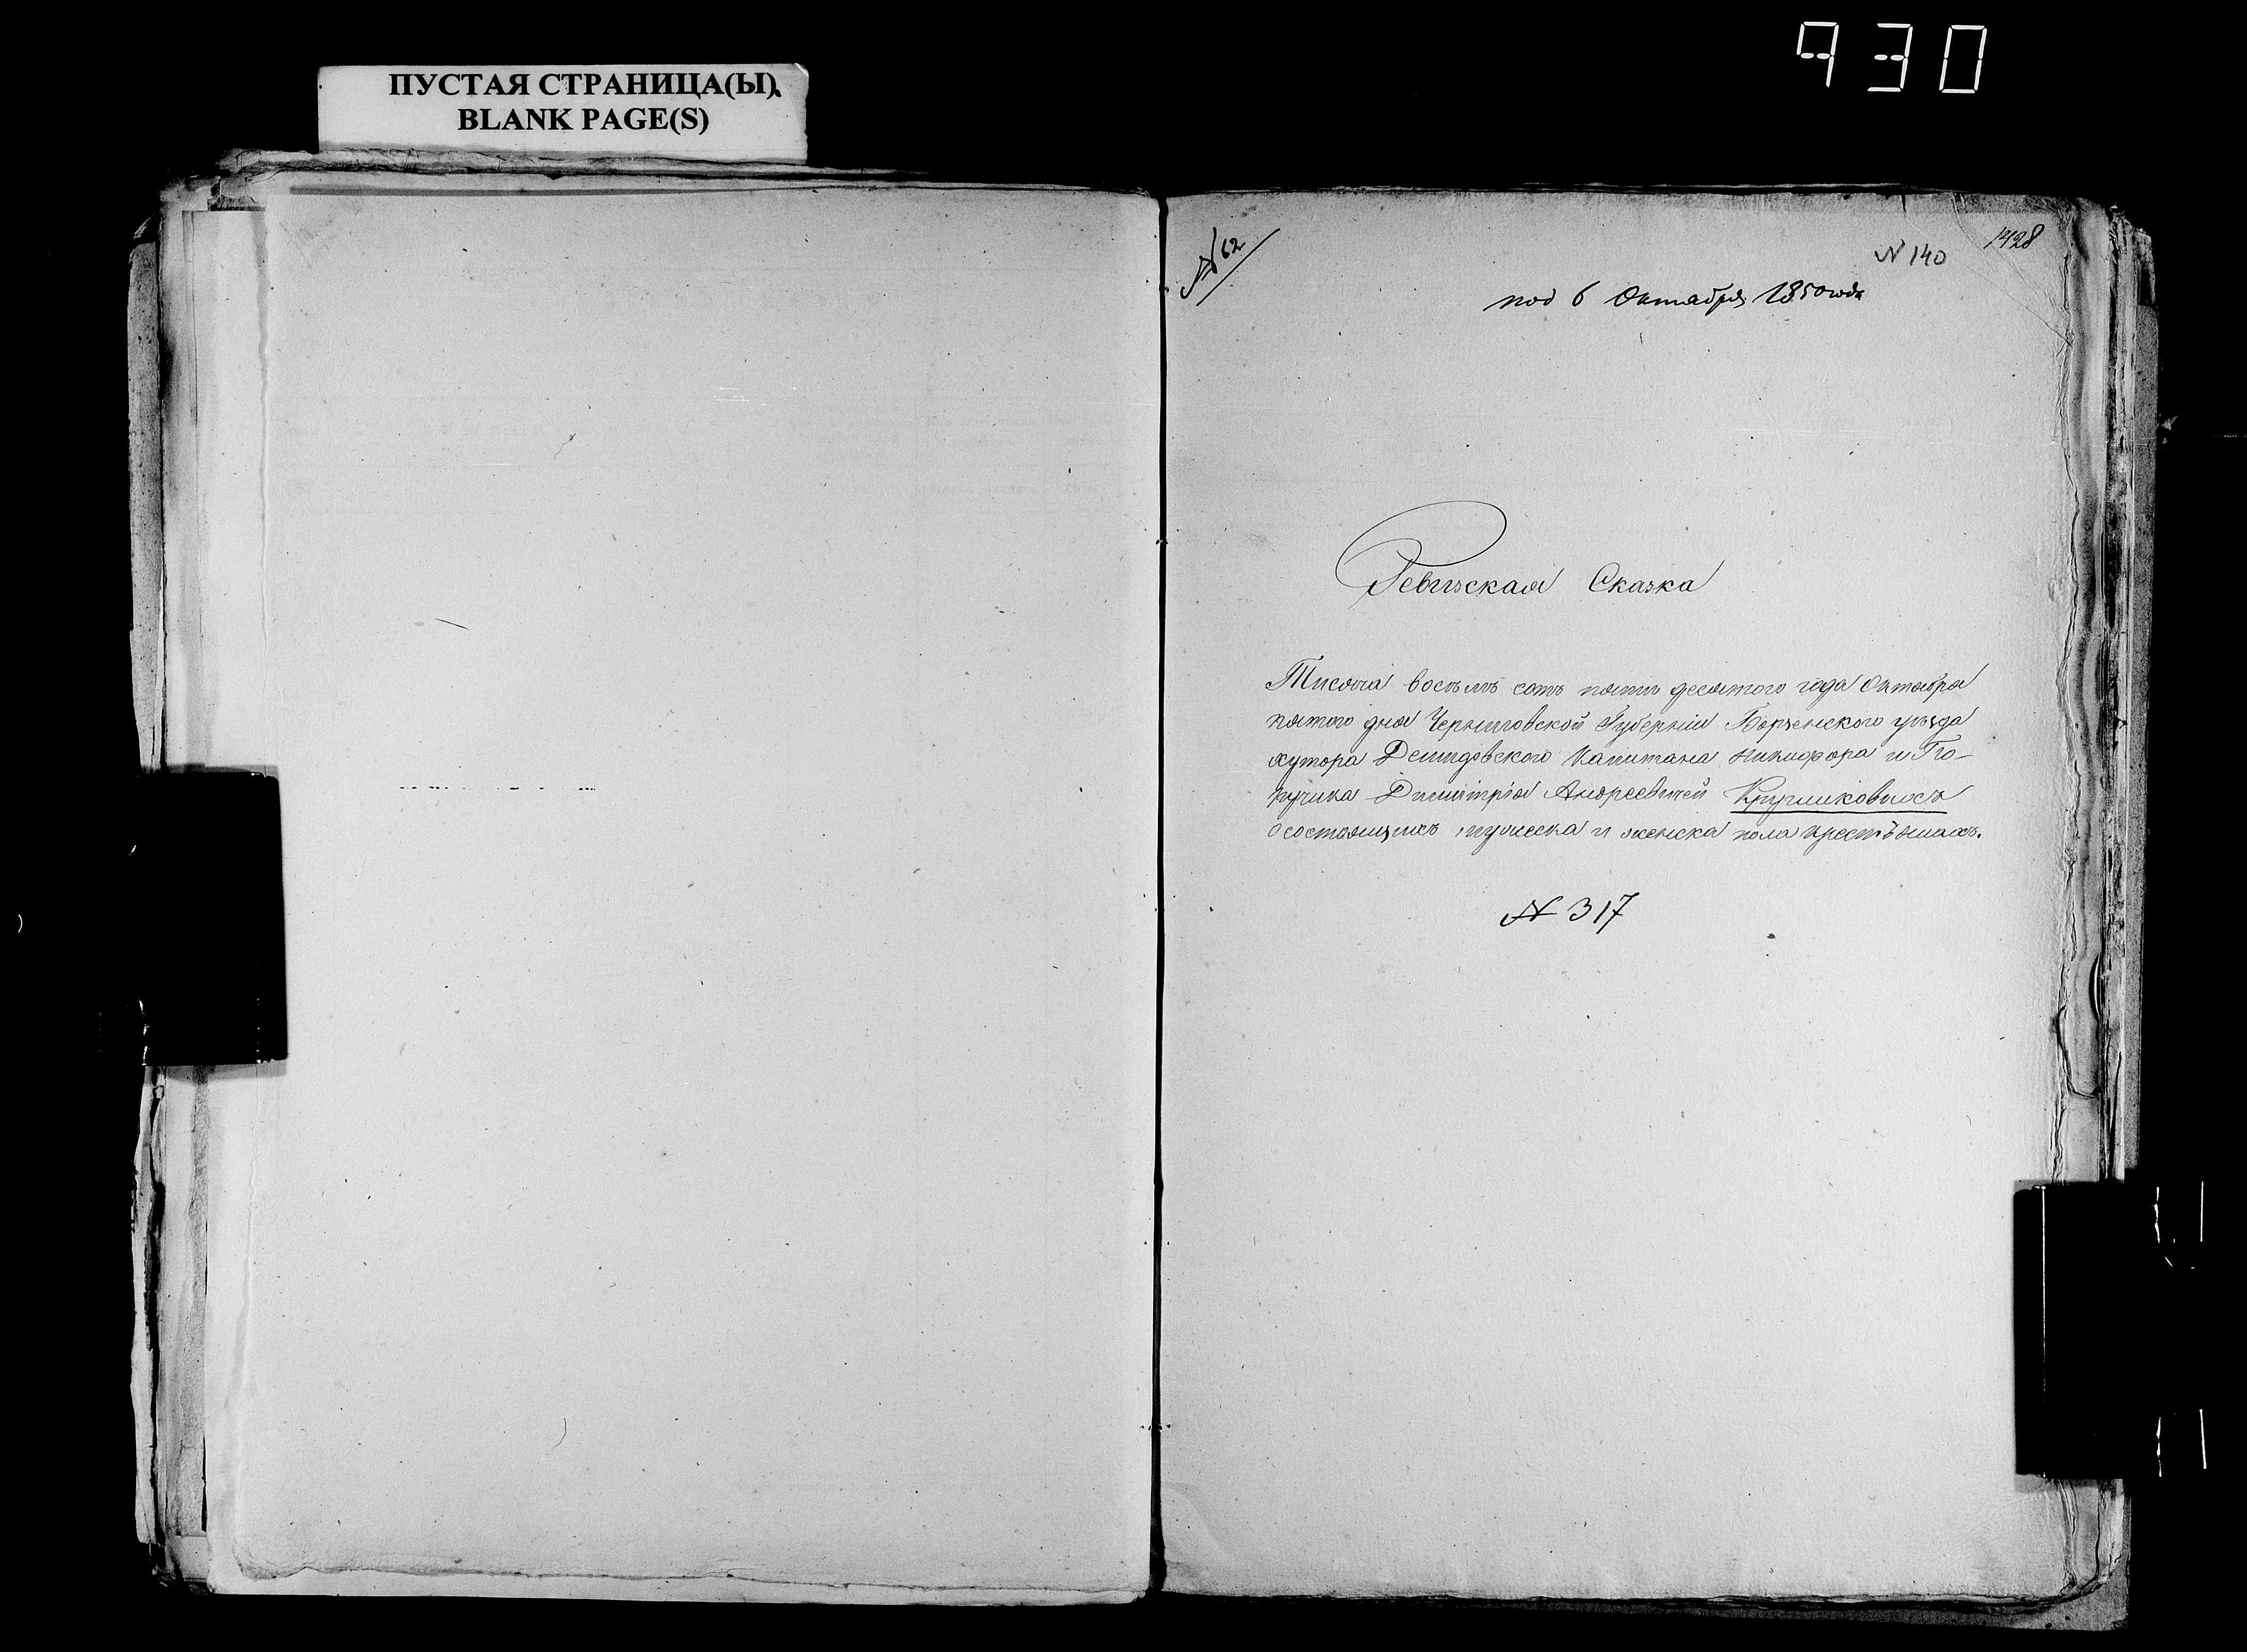 930
ПУСТАЯ СТРАНИЦА(Ы).
BLANK PAGE(S)
№ 62
№ 140
1428
под 6 Октября 1850 года
Ревизская Сказка
Тисяча восъмъ сотъ пять десятого года Октября
пятого дня Черниговской Губерніи Борзенского уѣзда
хутора Демидовского Капитана Никифора и По-
ручика Димитрія Андреевичей Кружиковыхъ
о состоящихъ мужеска и женска пола крестьянахъ.
№ 317